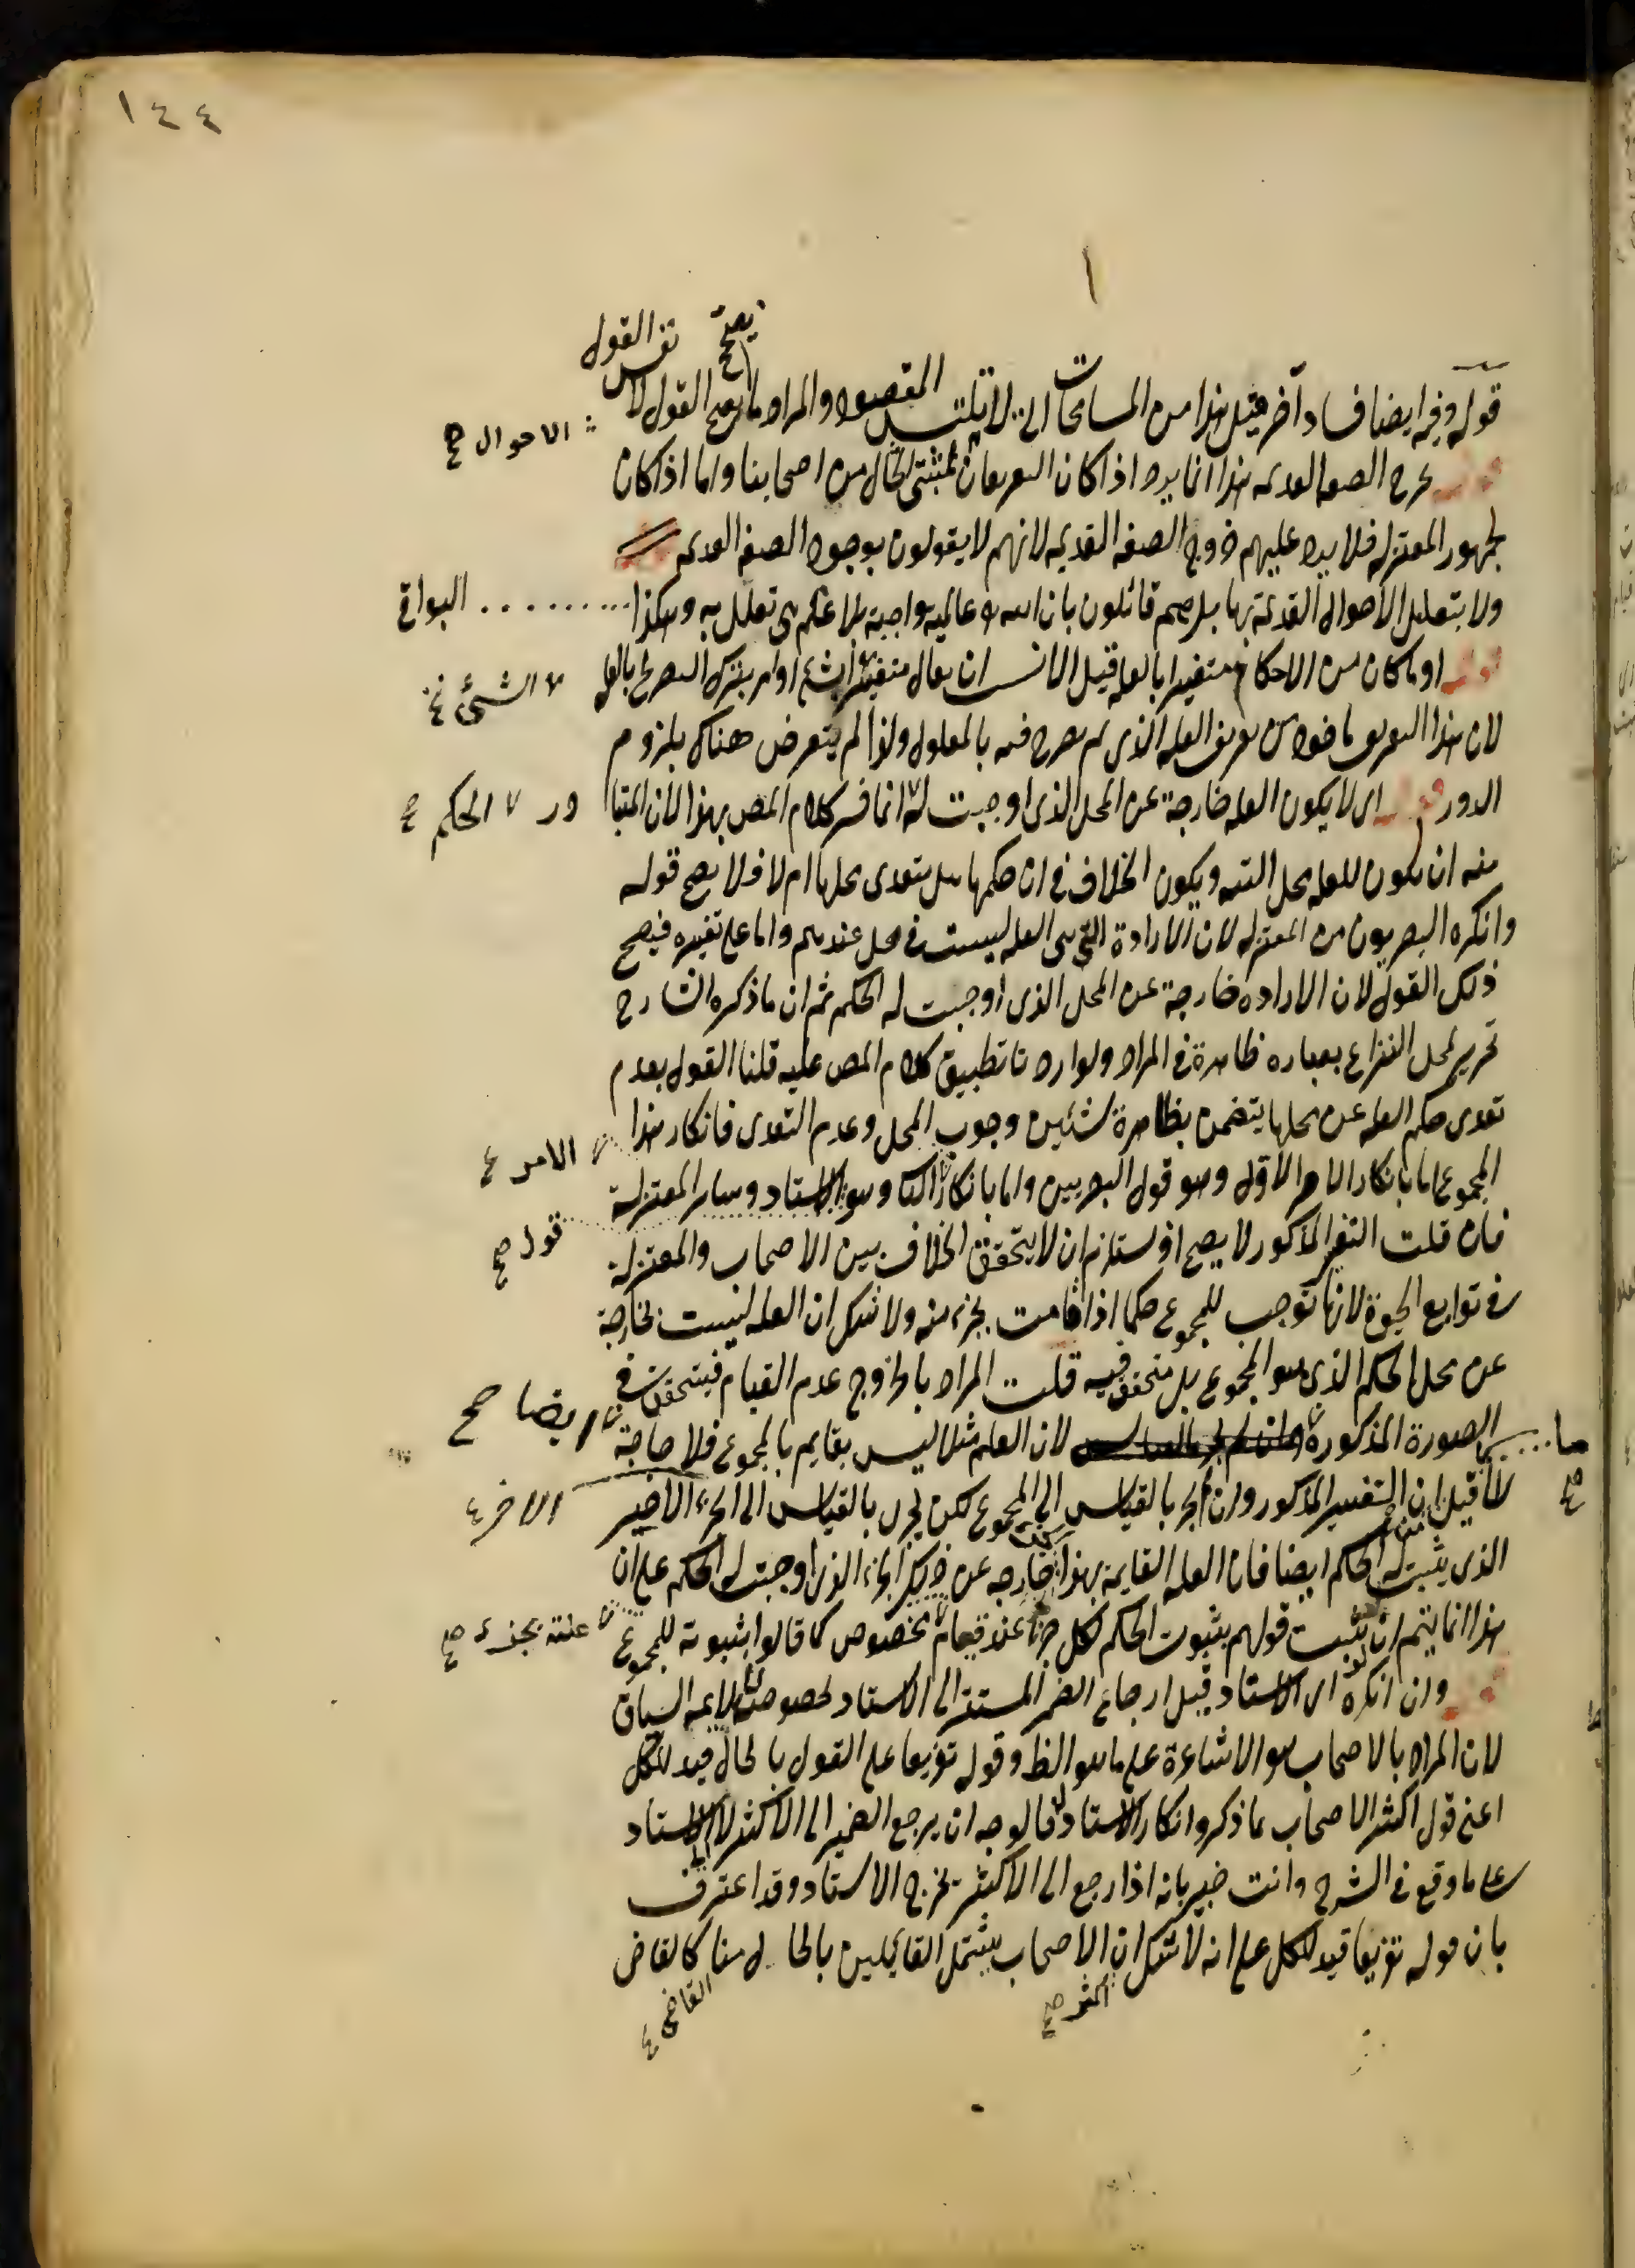 ١٤٤
١
يصح نفس القول
قوله وفيه ايضا فساد آخر مثل هذا من المسامحات التي لا يلتبس المقصود والمراد ما يصح القول لا
الاحوال صح
يخرج الصفة القديمة هذا انما يرد اذا كان التعريفان لمثبتي الحال من اصحابنا واما اذا كان
لجمهور المعتزلة فلا يرد عليهم خروج الصفة القديمة لانهم لا يقولون بوجود الصفة القديمة
ولا بتعليل الاحوال القديمة بها بل هم قائلون بان لله عالمية واجبة بلا علم هي تعلل به وهكذا البواقي
قوله او ما كان من الاحكام متغيرا بالعلة قيل الانسب ان يقال متغيرا بشئ او امر بترك التصريح بالعلة
الشئ
لان هذا التعريف ماخوذ من تعريف العلة الذي لم يصرح فيه بالمعلول ولذا لم يتعرض هناك بلزوم
الدور قوله اى لا يكون العلة خارجة عن المحل الذى اوجبت له انما فسر كلام المص بهذا لان المتبادر
الحكم
منه ان يكون للعلة محل البتة ويكون الخلاف في ان حكمها هل يتعدى محلها ام لا فلا يصح قوله
وانكره البصريون من المعتزلة لان الارادة التي هي العلة ليست في محل عندهم واما على تفسيره فيصح
ذلك القول لان الارادة خارجة عن المحل الذى اوجبت له الحكم ثم ان ما ذكره الشارح
تحرير لمحل النزاع بعبارة ظاهرة في المراد ولو اردنا تطبيق كلام المص عليه قلنا القول بعدم
تعدى حكم العلة عن محلها يتضمن بظاهره شيئين وجوب المحل وعدم التعدى فانكار هذا
الامر
المجموع اما بانكار الامر الاول وهو قول البصريين واما بانكار الثانى وهو الاستاد وساير المعتزلة
قول صح
فان قلت التفسير المذكور لا يصح اذ يستلزم ان لا يتحقق الخلاف بين الاصحاب والمعتزلة
في توابع الحيوة لانها توجب للمجموع حكما اذا قامت بجزء منه ولا شك ان العلة ليست بخارجة
عن محل الحكم الذى هو المجموع بل متحقق فيه قلت المراد بالخروج عدم القيام فيتحقق في
الصورة المذكورة ايضا صح لان العلم مثلا ليس بقايم بالمجموع فلا حاجة
لما قيل ان التفسير المذكور وان لم يجر بالقياس الى المجموع لكن يجرى بالقياس الى الجزء الاخير
الاخر
الذى يثبت له الحكم ايضا فان العلة القايمة بهذا خارجة عن ذلك الجزء الذى اوجبت له الحكم على ان
هذا انما يتم ان يثبت قولهم بثبوت الحكم لكل جزء عند قيام مخصوص كما قالوا بثبوته للمجموع
علته بجزء صح
قوله وان انكره اى الاستاد قيل ارجاع الضمير المستتر الى الاستاد لخصوصه لا يلائمه السباق
لان المراد بالاصحاب هو الاشاعرة على ما هو الظ وقوله تفريعا على القول بالحال قيد للكل
اعنى قول اكثر الاصحاب بما ذكر وانكار الاستاد له فالوجه ان يرجع الضمير الى الاكثر لا الى الاستاد
على ما وقع في الشرح وانت خبير بانه اذا رجع الى الاكثر يخرج الاستاد وقد اعترف
بان قوله تفريعا قيد للكل على انه لا شك ان الاصحاب يشمل القايلين بالحال منا كالقاضى
اكثر صح
القاضى